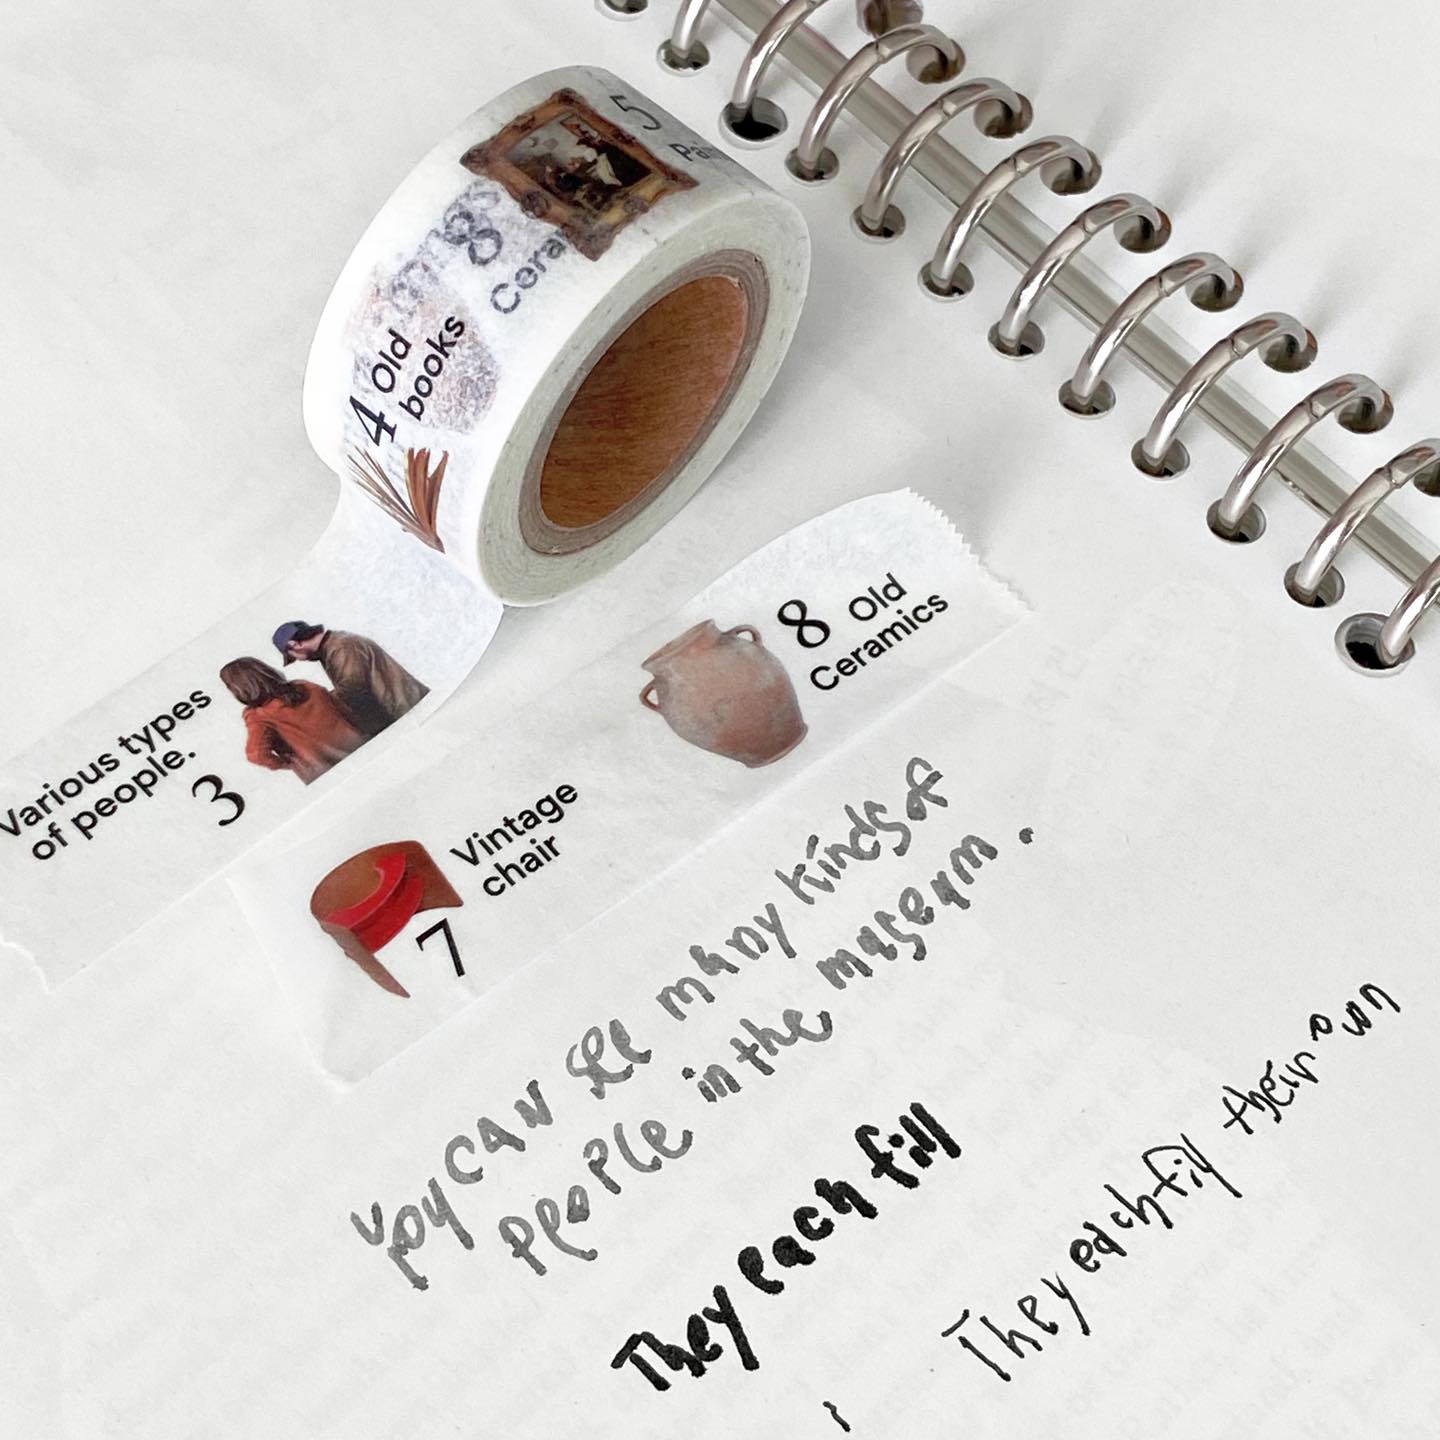 5
8
Cera
4 Old
books
Various types
of people.
3
8 Old
Ceramics
Vintage
chair
7
you can see many kinds of
people in the museum.
They each fill
They each fill their own